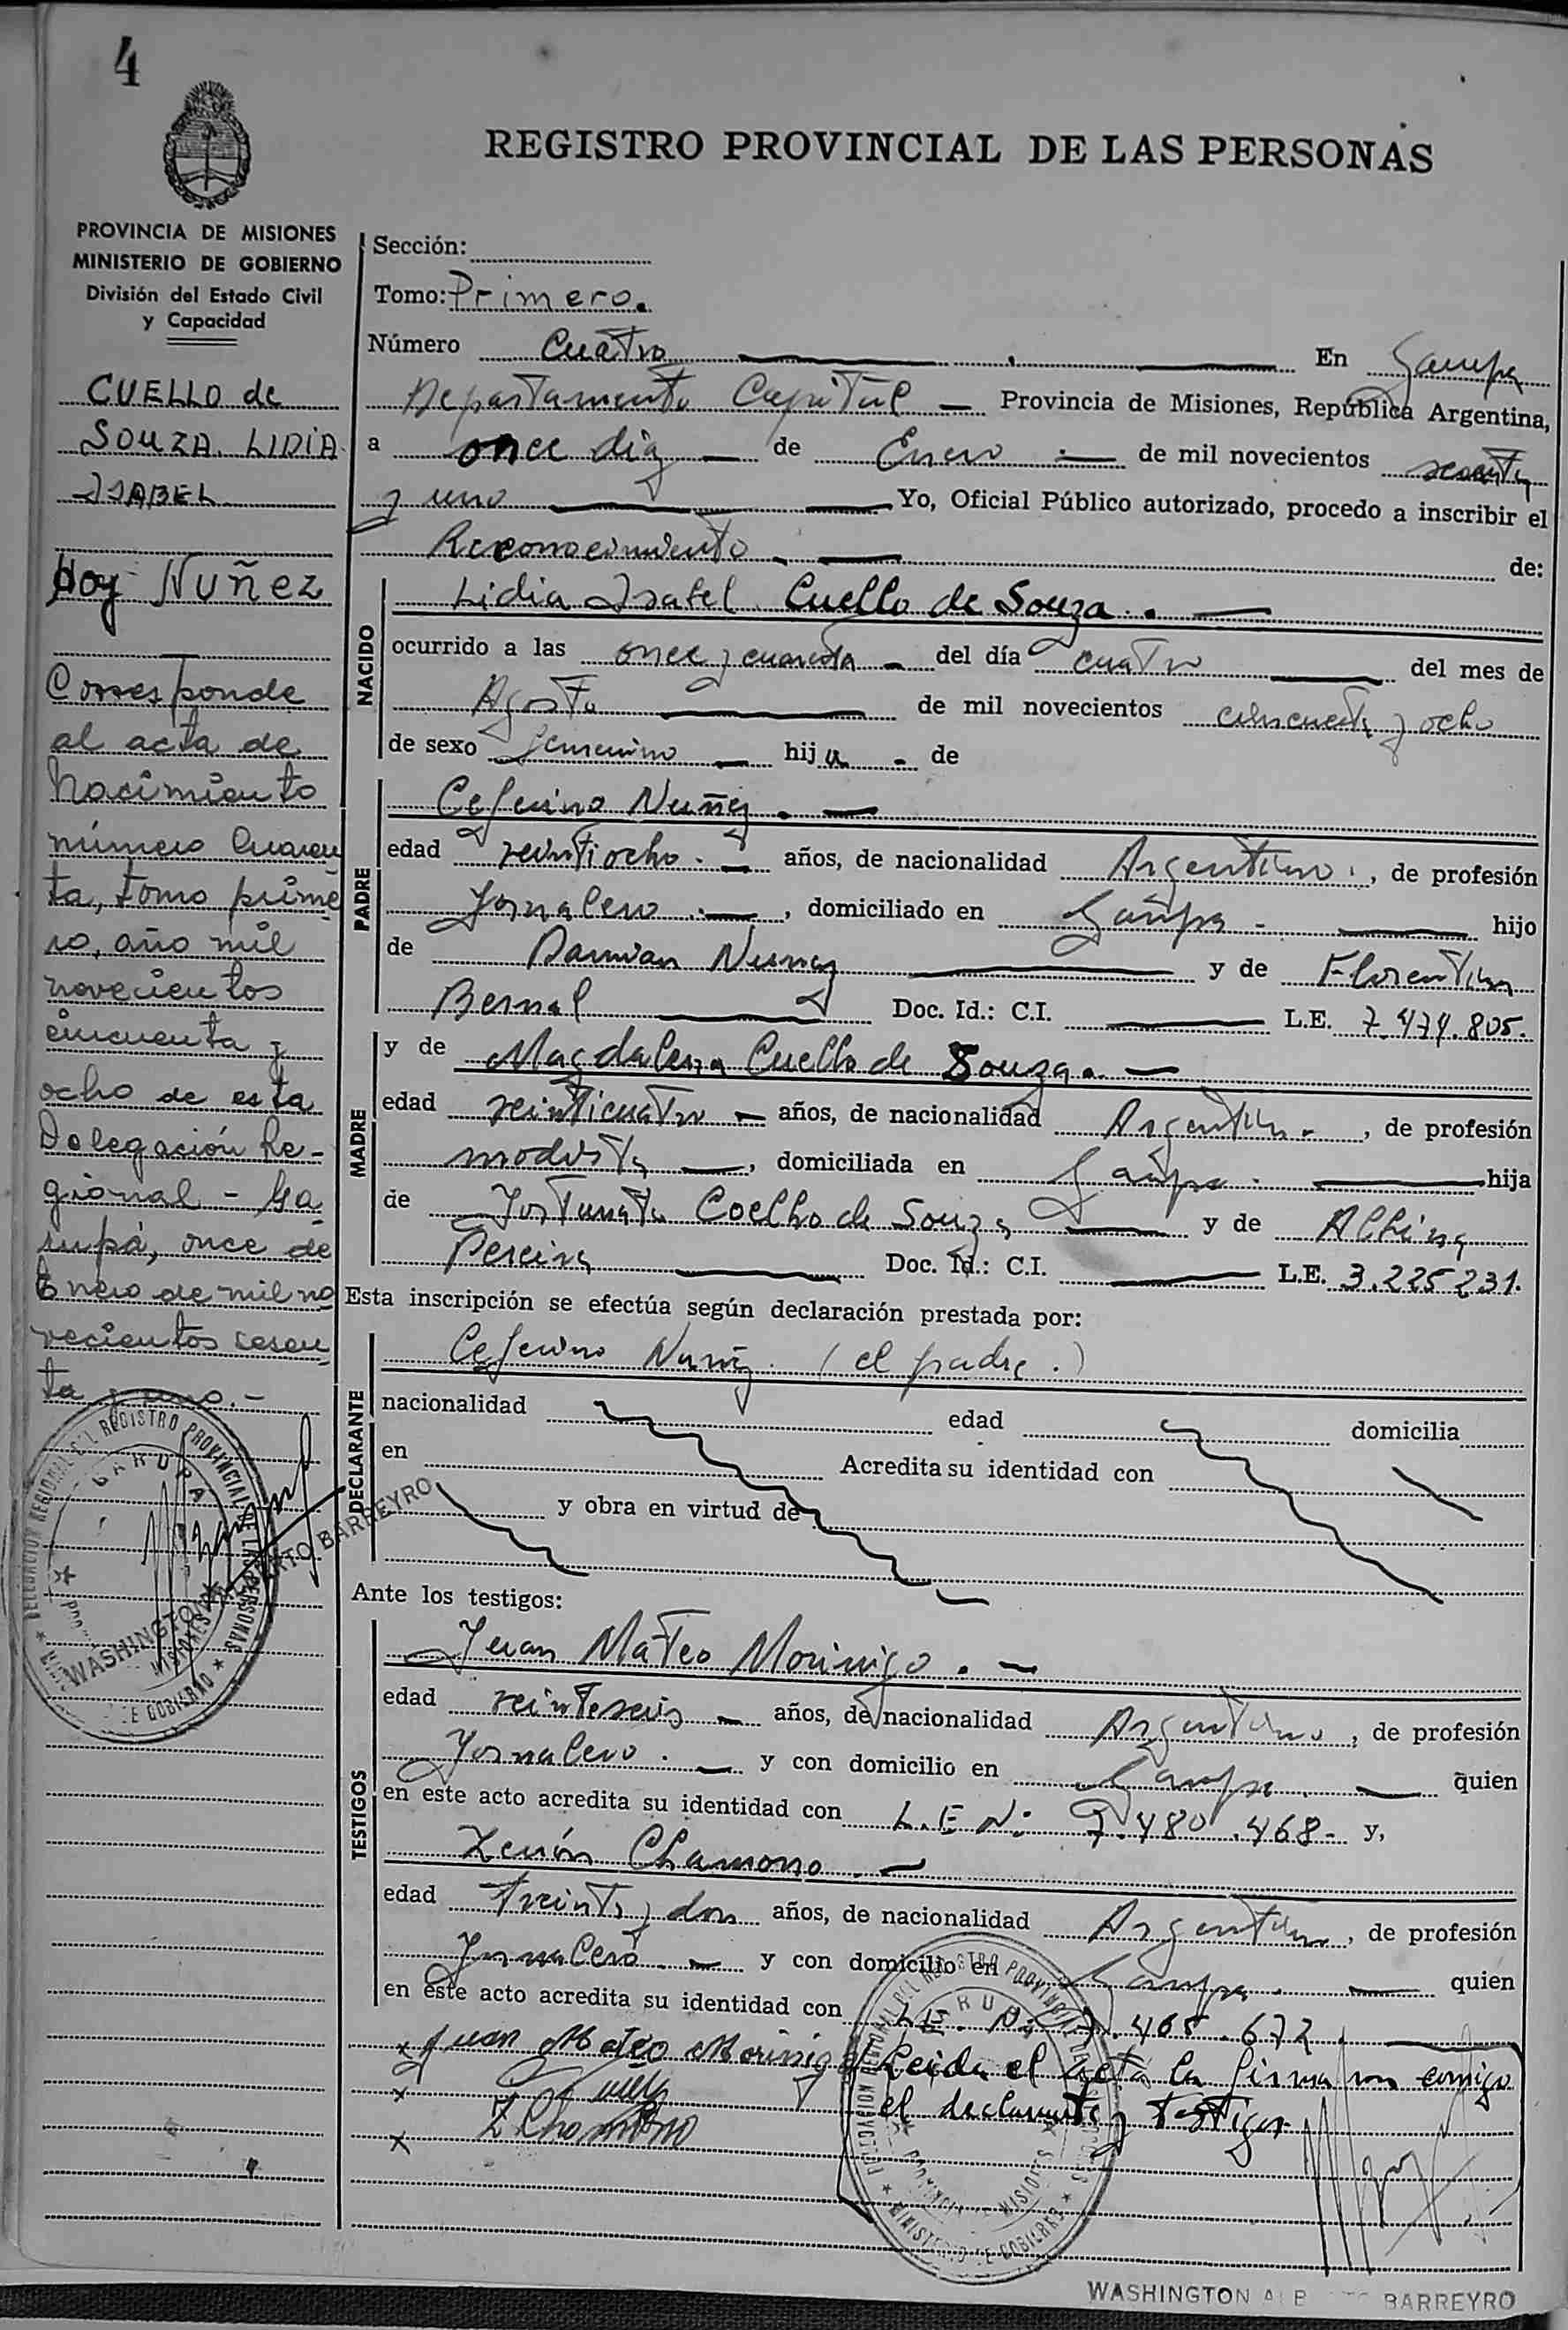 4
REGISTRO PROVINCIAL DE LAS PERSONAS
PROVINCIA DE MISIONES
MINISTERIO DE GOBIERNO
División del Estado Civil
y Capacidad
CUELLO de
SOUZA. LIDIA
ISABEL
Hoy Nuñez
Corresponde
al acta de
Nacimiento
número Cuaren
ta, tomo prime
ro, año mil
novecientos
cincuenta y
ocho de esta
Delegación Re-
gional - Ga
rupá, once de
Enero de mil no
vecientos sesen
ta y uno.-
DELEGACION REGIONAL DEL REGISTRO PROVINCIAL DE LAS PERSONAS
GARUPA
MISIONES
DE GOBIERNO
WASHINGTON ALBERTO BARREYRO
Sección:
Tomo: Primero.
Número Cuatro En Garupa
Departamento Capital Provincia de Misiones, República Argentina,
a once dia de Enero de mil novecientos sesenta
y uno Yo, Oficial Público autorizado, procedo a inscribir el
Reconocimiento de:
NACIDO
Lidia Isabel Cuello de Souza.
ocurrido a las once y cuarenta del día cuatro del mes de
Agosto de mil novecientos cincuenta y ocho
de sexo femenino hija de
PADRE
Ceferino Nuñez.
edad veintiocho. años, de nacionalidad Argentino., de profesión
Jornalero, domiciliado en Garupa hijo
de Damian Nunez y de Florentina
Bernal Doc. Id.: C.I. L.E. 7.474.805.
MADRE
y de Magdalena Cuello de Souza.
edad veinticuatro años, de nacionalidad Argentina, de profesión
modista, domiciliada en Garupa. hija
de Fortunato Coelho de Souza y de Albina
Pereira Doc. Id.: C.I. L.E. 3.225.231.
Esta inscripción se efectúa según declaración prestada por:
DECLARANTE
Ceferino Nuñez. (el padre.)
nacionalidad edad domicilia
en Acredita su identidad con
y obra en virtud de
Ante los testigos:
TESTIGOS
Juan Mateo Morinigo.
edad veinteseis años, de nacionalidad Argentino, de profesión
Jornalero. y con domicilio en Garupa quien
en este acto acredita su identidad con L.E. N: 7.480.468- y,
Zenón Chamorro.
edad treinta y dos años, de nacionalidad Argentino, de profesión
Jornalero y con domicilio en Garupa. quien
en este acto acredita su identidad con L.E. N: 7.465.672
x Juan Mateo Morinigo Leida el acta la firman conmigo
x el declarante y testigos.
x Z Chamorro
DELEGACION REGIONAL DEL REGISTRO PROVINCIAL DE LAS PERSONAS
GARUPA
PROVINCIA DE MISIONES
MINISTERIO DE GOBIERNO
WASHINGTON ALBERTO BARREYRO